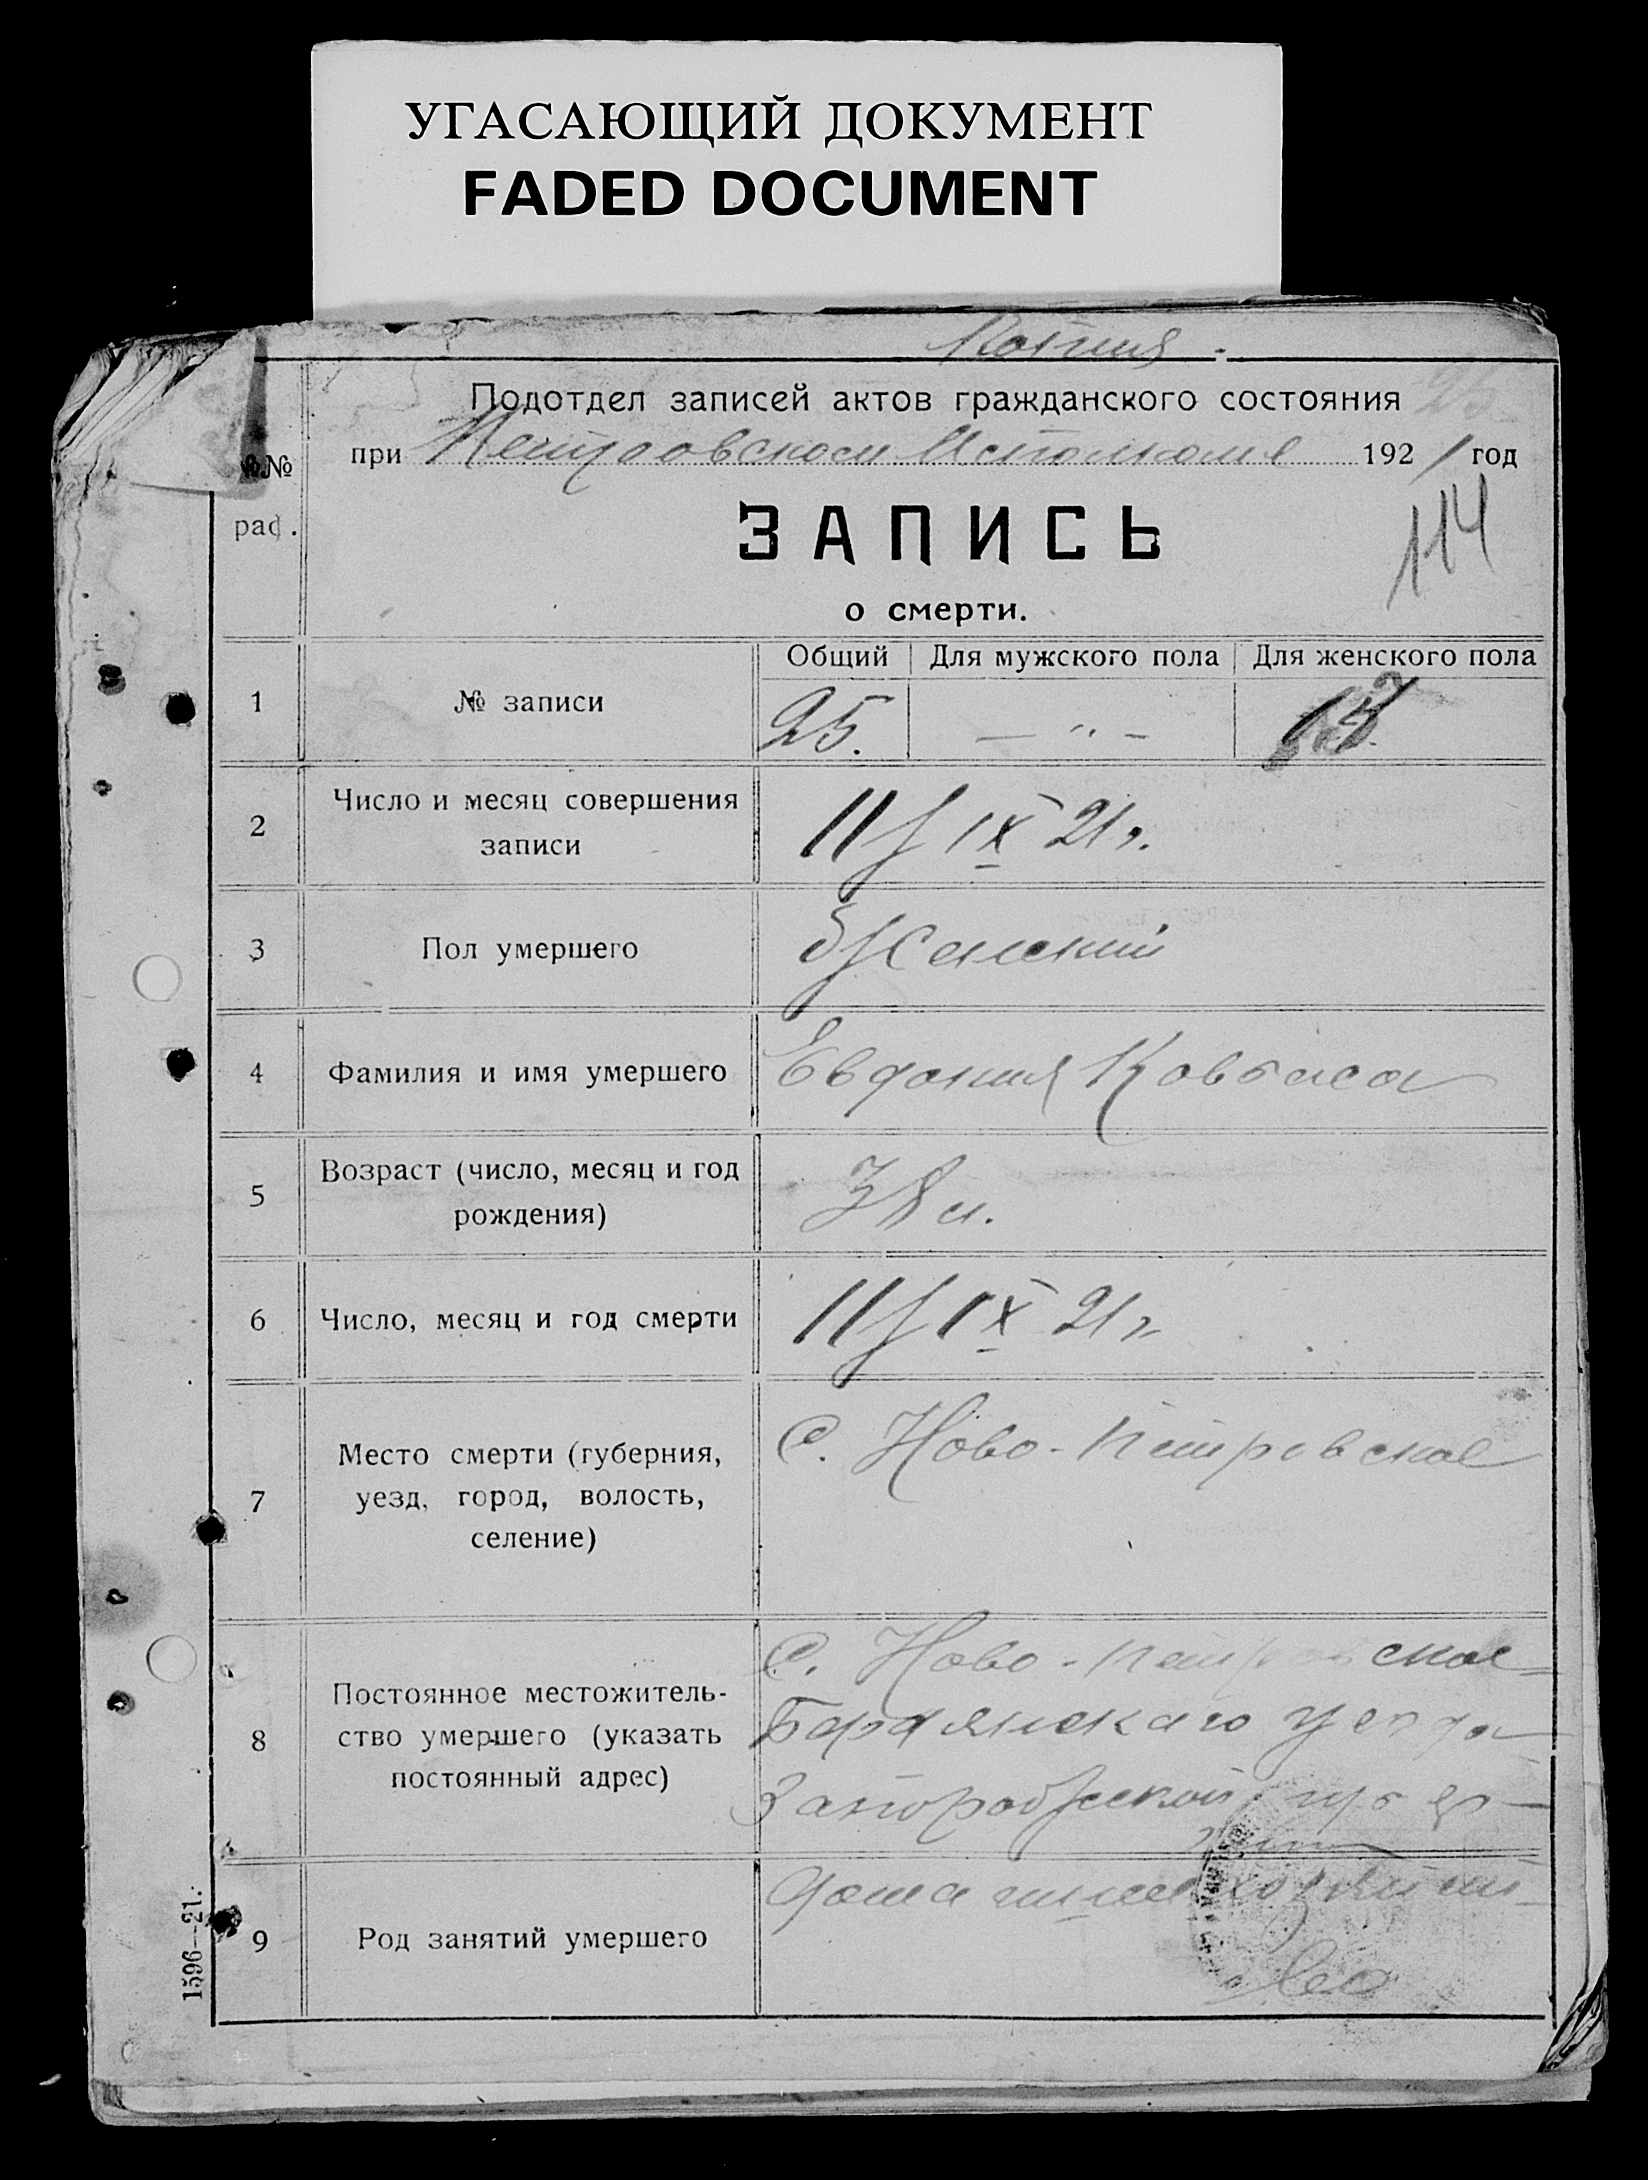 УГАСАЮЩИЙ ДОКУМЕНТ
FADED DOCUMENT
Копия.
Подотдел записей актов гражданского состояния 25
при Петровском Исполкоме 1921 год
№№
раф.
114
ЗАПИСЬ
о смерти.
Общий Для мужского пола Для женского пола
1 № записи 25. — " —
2 Число и месяц совершения
записи
11/IX 21 г.
3 Пол умершего Женский
4 Фамилия и имя умершего Евдокия Ковбаса
5 Возраст (число, месяц и год
рождения)
38 л.
6 Число, месяц и год смерти 11/IX 21 г.
7 Место смерти (губерния,
уезд, город, волость,
селение)
С. Ново-Петровское
8 Постоянное местожитель-
ство умершего (указать
постоянный адрес)
С. Ново-Петровское
Бердянскаго уезда
Запорожской губер-
нии
9 Род занятий умершего
1596—21.